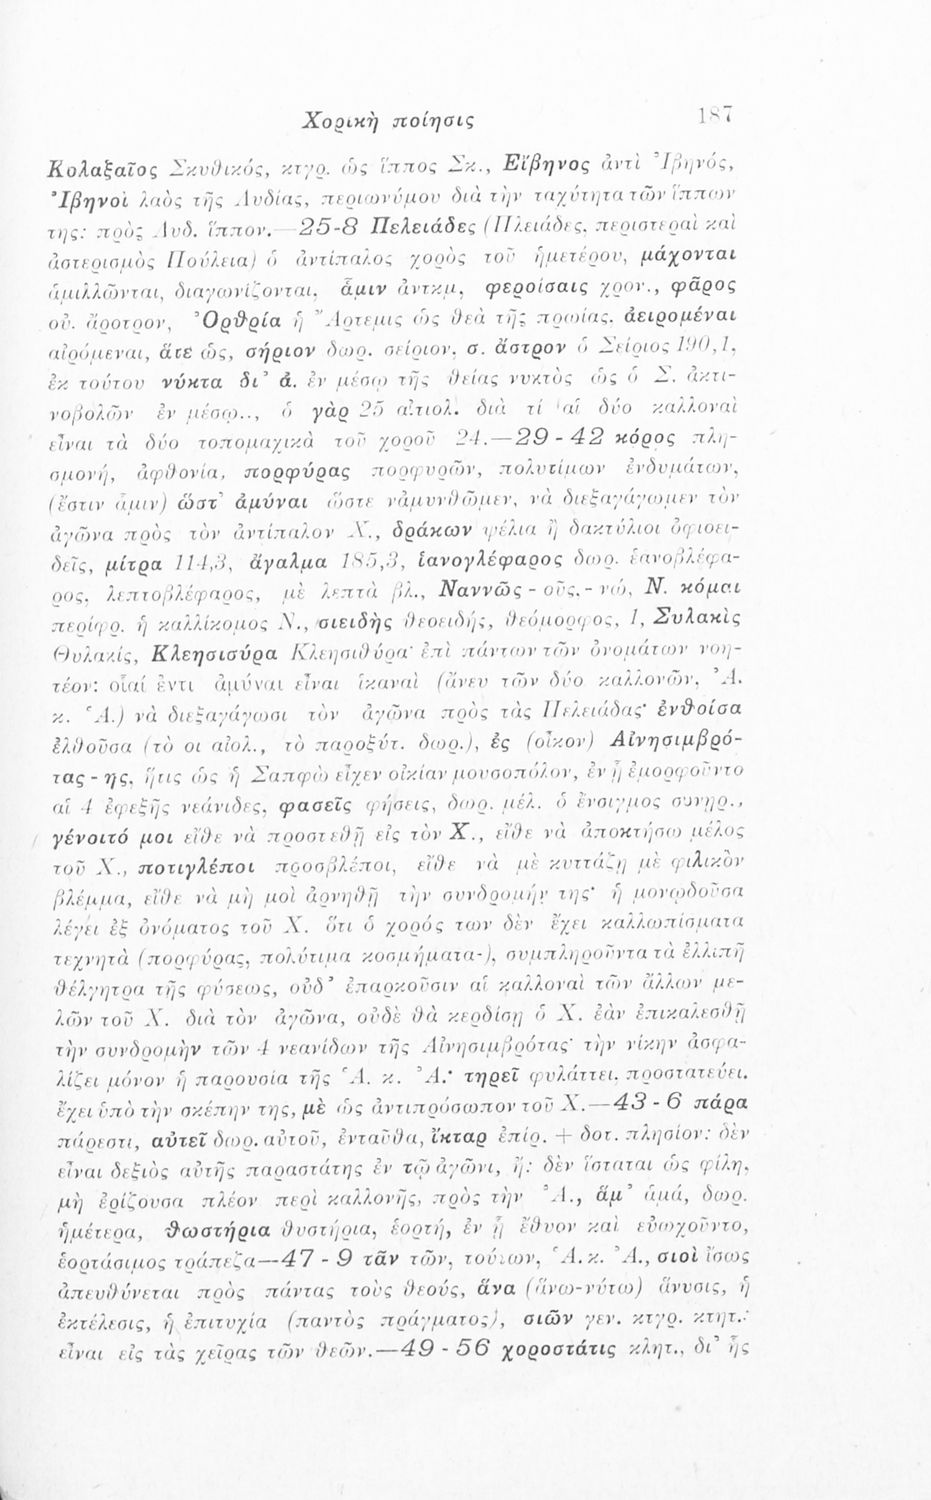 Χορικὴ ποίησις 187
Κολαξαῖος Σκυθικός, κτγρ. ὡς ἵππος Σκ., Εἴβηνος ἀντὶ Ἰβηνός,
Ἰβηνοὶ λαὸς τῆς Λυδίας, περιωνύμου διὰ τὴν ταχύτητα τῶν ἵππων
της: πρὸς Λυδ. ἵππον.—25-8 Πελειάδες (Πλειάδες, περιστεραὶ καὶ
ἀστερισμὸς Πούλεια) ὁ ἀντίπαλος χορὸς τοῦ ἡμετέρου, μάχονται
ἁμιλλῶνται, διαγωνίζονται, ἇμιν ἀντκμ, φεροίσαις χρον., φᾶρος
οὐ. ἄροτρον, Ὀρθρία ἡ Ἄρτεμις ὡς θεὰ τῆς πρωίας, ἀειρομέναι
αἰρόμεναι, ἅτε ὡς, σήριον δωρ. σείριον, σ. ἄστρον ὁ Σείριος 190,1,
ἐκ τούτου νύκτα δι’ ἀ. ἐν μέσῳ τῆς θείας νυκτὸς ὡς ὁ Σ. ἀκτι-
νοβολῶν ἐν μέσῳ.., ὁ γὰρ 25 αἰτιολ. διὰ τί αἱ δύο καλλοναὶ
εἶναι τὰ δύο τοπομαχικὰ τοῦ χοροῦ 24.—29 - 42 κόρος πλη-
σμονή, ἀφθονία, πορφύρας πορφυρῶν, πολυτίμων ἐνδυμάτων,
(ἔστιν ἁμιν) ὥστ’ ἀμύναι ὥστε νἀμυνθῶμεν, νὰ διεξαγάγωμεν τὸν
ἀγῶνα πρὸς τὸν ἀντίπαλον Χ., δράκων ψέλια ἢ δακτύλιοι ὀφιοει-
δεῖς, μίτρα 114,3, ἄγαλμα 185,3, ἰανογλέφαρος δωρ. ἑανοβλέφα-
ρος, λεπτοβλέφαρος, μὲ λεπτὰ βλ., Ναννῶς - οῦς,- νώ, Ν. κόμαι
περίφρ. ἡ καλλίκομος Ν., σιειδὴς θεοειδής, θεόμορφος, 1, Συλακὶς
Θυλακίς, Κλεησισύρα Κλεησιθύρα· ἐπὶ πάντων τῶν ὀνομάτων νοη-
τέον: οἷαί ἐντι ἀμύναι εἶναι ἱκαναὶ (ἄνευ τῶν δύο καλλονῶν, Ἀ.
κ. Ἁ.) νὰ διεξαγάγωσι τὸν ἀγῶνα πρὸς τὰς Πελειάδας· ἐνθοίσα
ἐλθοῦσα (τὸ οι αἰολ., τὸ παροξύτ. δωρ.), ἐς (οἶκον) Αἰνησιμβρό-
τας - ης, ἥτις ὡς ἡ Σαπφὼ εἶχεν οἰκίαν μουσοπόλον, ἐν ᾗ ἐμορφοῦντο
αἱ 4 ἐφεξῆς νεάνιδες, φασεῖς φήσεις, δωρ. μέλ. ὁ ἐνσιγμος συνῃρ.,
γένοιτό μοι εἴθε νὰ προστεθῇ εἰς τὸν Χ., εἴθε νὰ ἀποκτήσω μέλος
τοῦ Χ., ποτιγλέποι προσβλέποι, εἴθε νὰ μὲ κυττάζῃ μὲ φιλικὸν
βλέμμα, εἴθε νὰ μὴ μοὶ ἀρνηθῇ τὴν συνδρομήν της· ἡ μονῳδοῦσα
λέγει ἐξ ὀνόματος τοῦ Χ. ὅτι ὁ χορός των δὲν ἔχει καλλωπίσματα
τεχνητὰ (πορφύρας, πολύτιμα κοσμήματα·), συμπληροῦντα τὰ ἐλλιπῆ
θέλγητρα τῆς φύσεως, οὐδ’ ἐπαρκοῦσιν αἱ καλλοναὶ τῶν ἄλλων με-
λῶν τοῦ Χ. διὰ τὸν ἀγῶνα, οὐδὲ θὰ κερδίσῃ ὁ Χ. ἐὰν ἐπικαλεσθῇ
τὴν συνδρομὴν τῶν 4 νεανίδων τῆς Αἰνησιμβρότας· τὴν νίκην ἀσφα-
λίζει μόνον ἡ παρουσία τῆς Ἁ. κ. Ἀ.· τηρεῖ φυλάττει, προστατεύει,
ἔχει ὑπὸ τὴν σκέπην της, μὲ ὡς ἀντιπρόσωπον τοῦ Χ.—43 - 6 πάρα
πάρεστι, αὐτεῖ δωρ. αὐτοῦ, ἐνταῦθα, ἴκταρ ἐπίρ. + δοτ. πλησίον: δὲν
εἶναι δεξιὸς αὐτῆς παραστάτης ἐν τῷ ἀγῶνι, ἤ: δὲν ἵσταται ὡς φίλη,
μὴ ἐρίζουσα πλέον περὶ καλλονῆς, πρὸς τὴν Ἀ., ἅμ’ ἁμά, δωρ.
ἡμέτερα, θωστήρια θυστήρια, ἑορτή, ἐν ᾗ ἔθυον καὶ εὐωχοῦντο,
ἑορτάσιμος τράπεζα—47 - 9 τᾶν τῶν, τούτων, Ἁ. κ. Ἀ., σιοὶ ἴσως
ἀπευθύνεται πρὸς πάντας τοὺς θεούς, ἄνα (ἄνω-νύτω) ἄνυσις, ἡ
ἐκτέλεσις, ἡ ἐπιτυχία (παντὸς πράγματος), σιῶν γεν. κτγρ. κτητ.:
εἶναι εἰς τὰς χεῖρας τῶν θεῶν.—49 - 56 χοροστάτις κλητ., δι’ ἧς